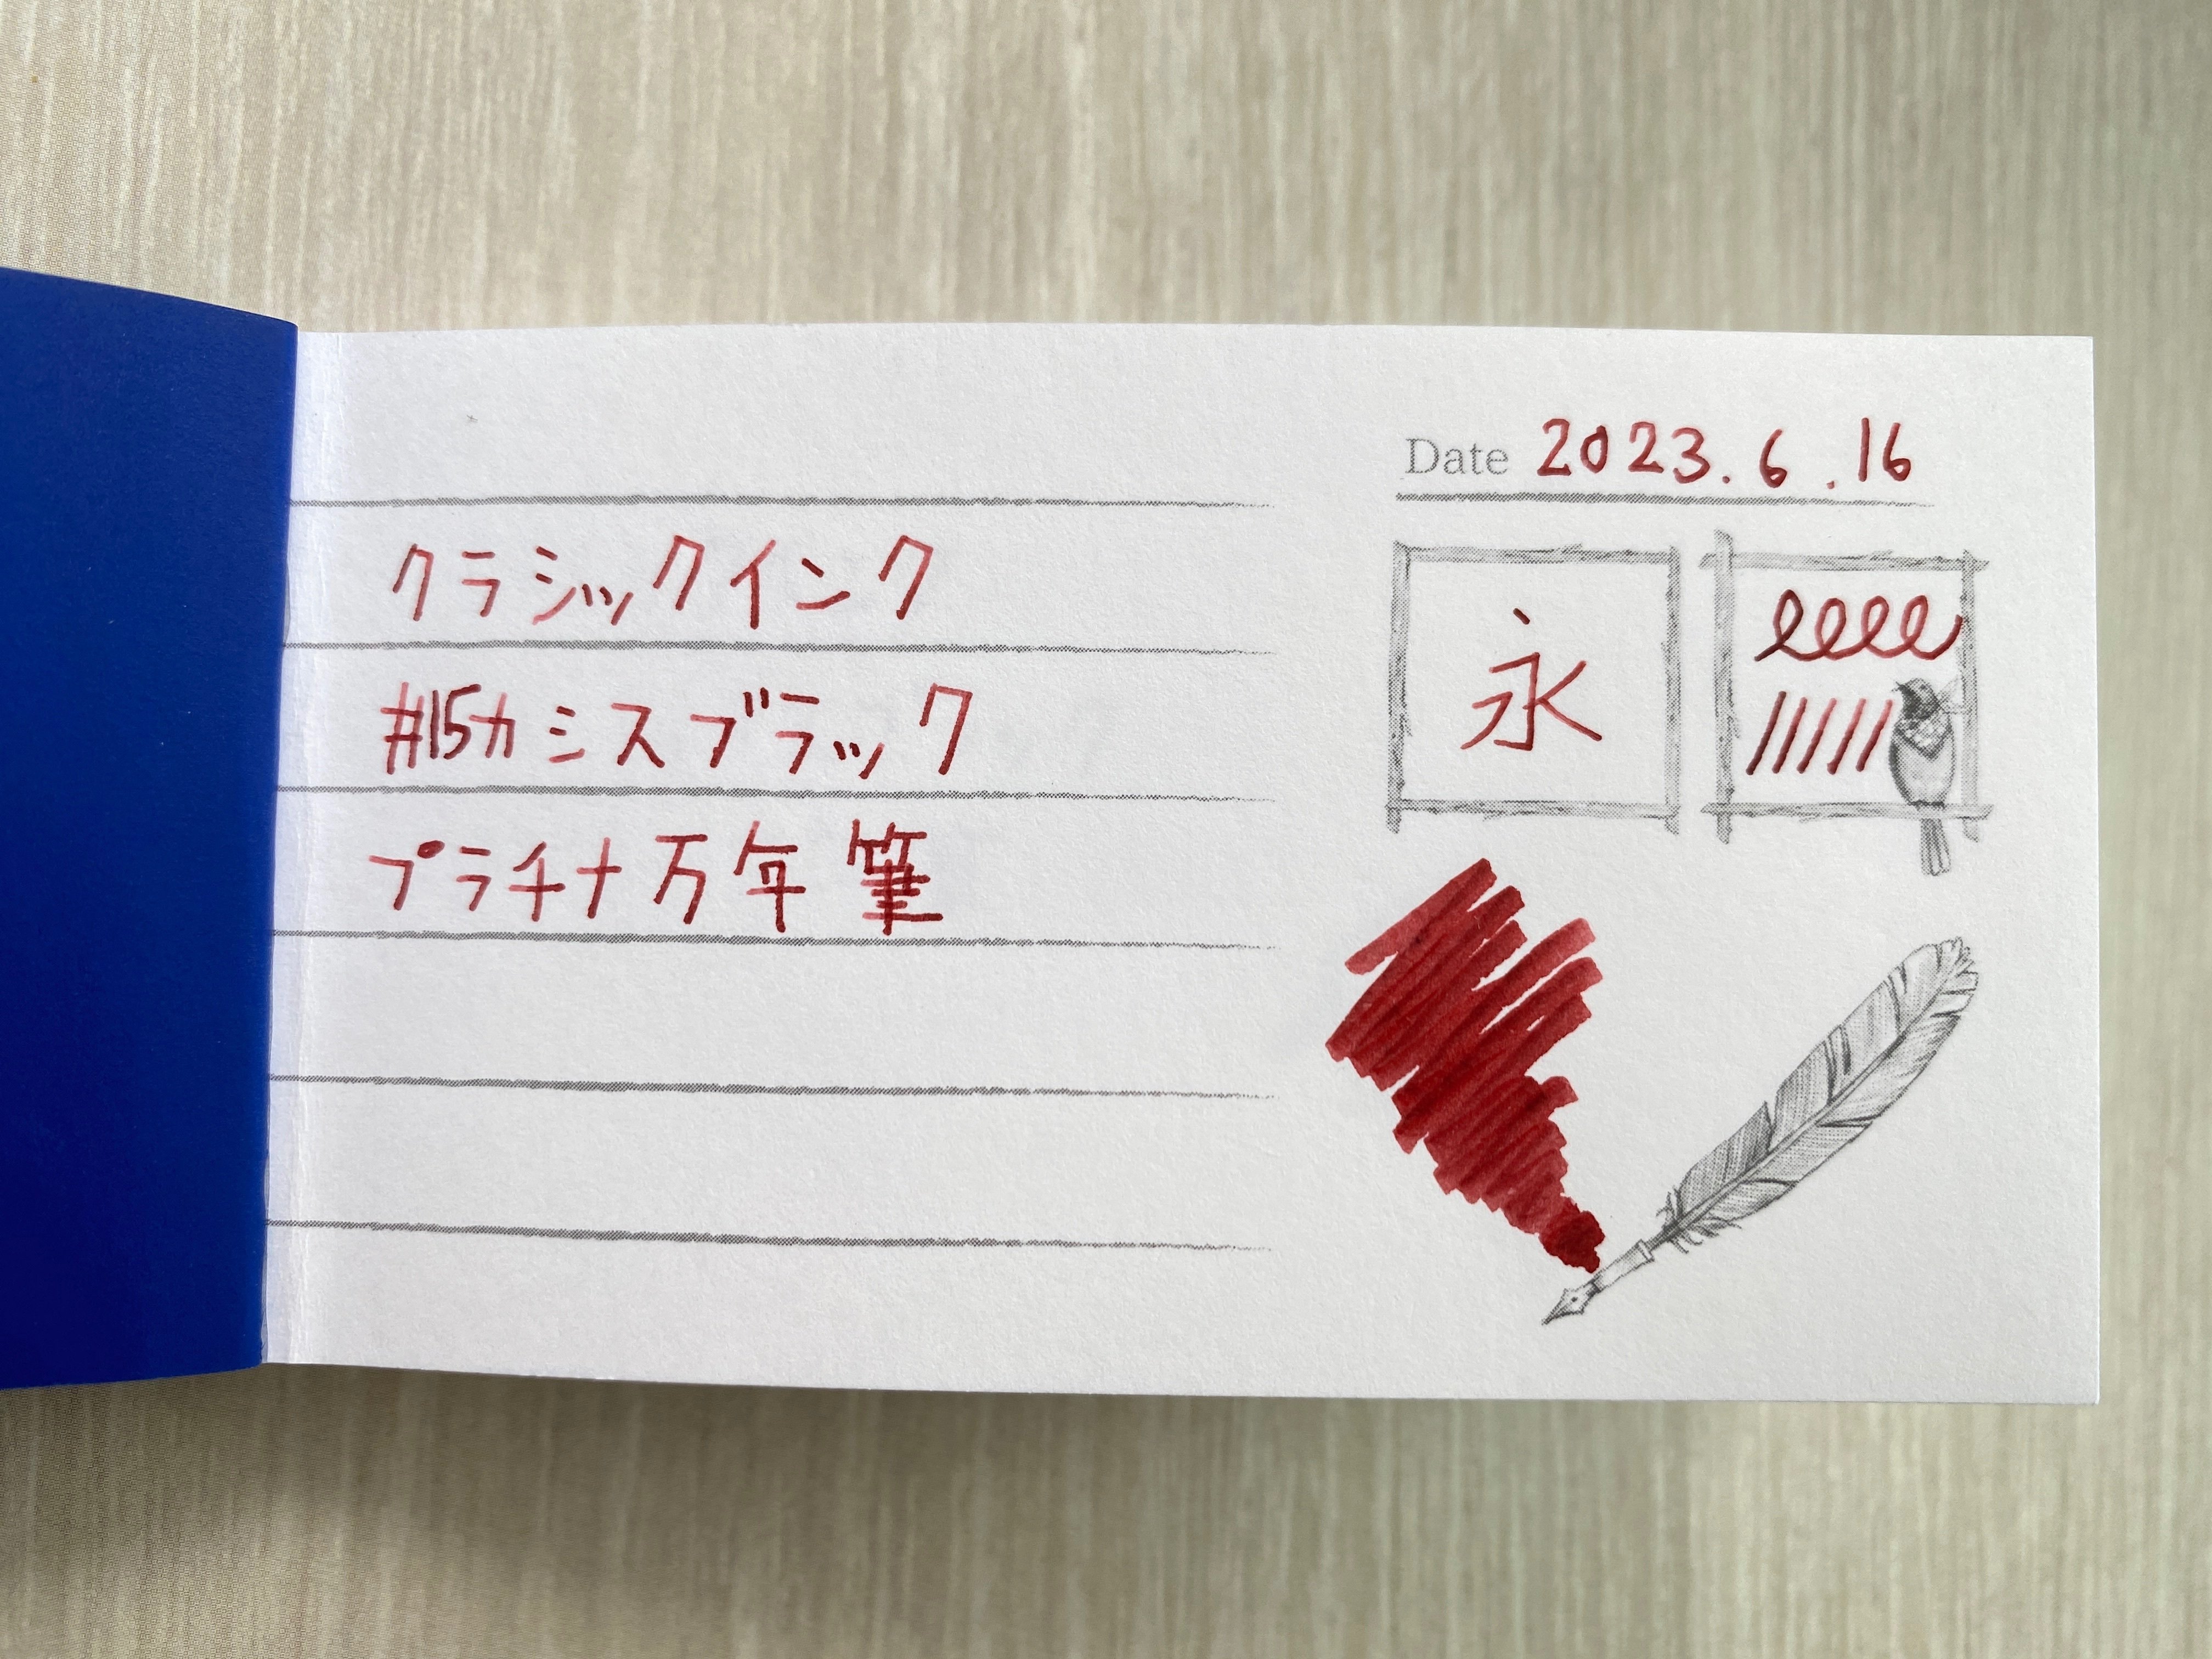 Date 2023.6.16
クラシックインク
#15カシスブラック
プラチナ万年筆
永